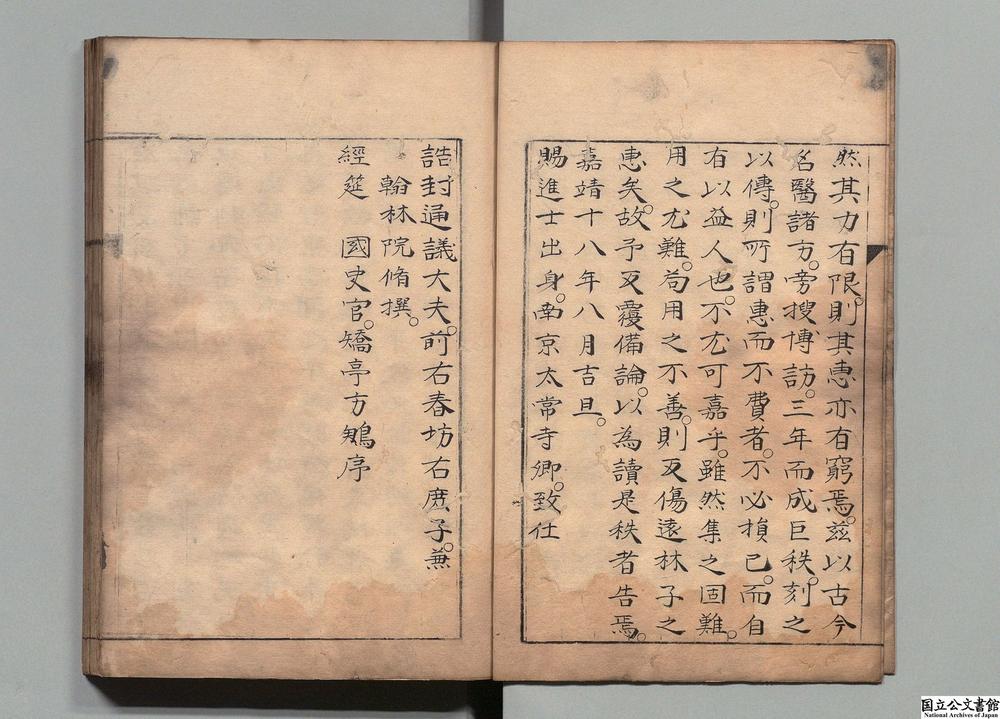 然其力有限。則其惠亦有窮焉。茲以古今
名醫諸方。旁搜博訪。三年而成巨秩。刻之
以傳。則所謂惠而不費者。不必損己。而自
有以益人也。不尤可嘉乎。雖然集之固難。
用之尤難。苟用之不善。則反傷遠林子之
惠矣。故予反覆備論。以為讀是秩者告焉。
嘉靖十八年八月吉旦。
賜進士出身。南京太常寺卿。致仕
誥封通議大夫。前右春坊右庶子。兼
翰林院脩撰。
經筵 國史官。矯亭方鵬序
国立公文書館
National Archives of Japan